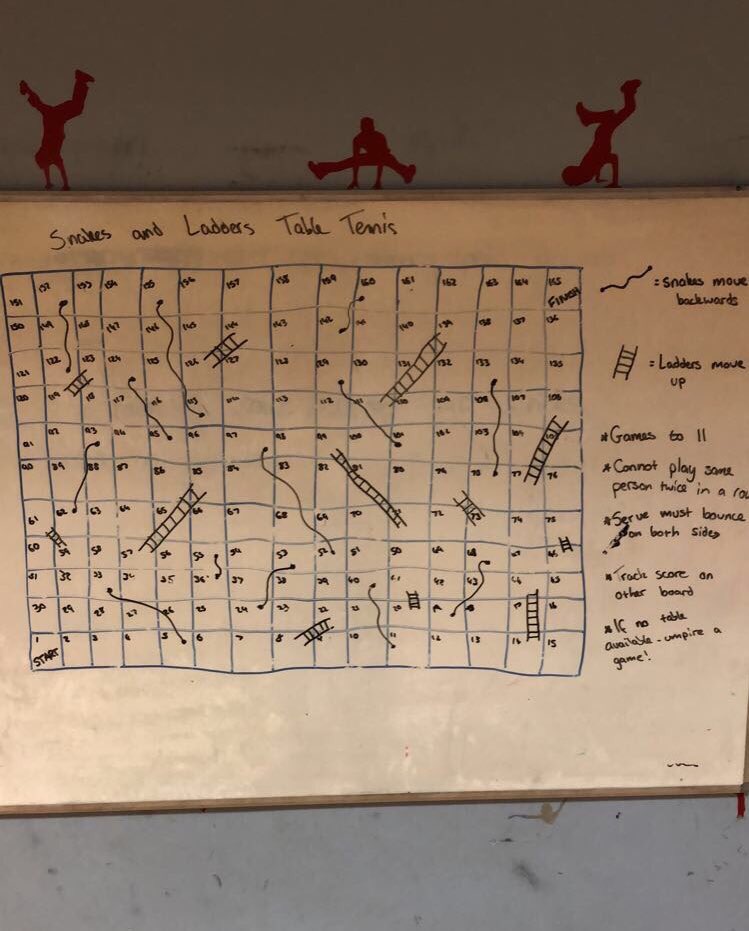 Snakes and Ladders Table Tennis
151 152 153 154 155 156 157 158 159 160 161 162 163 164 165
FINISH
150 149 148 147 146 145 144 143 142 141 140 139 138 137 136
121 122 123 124 125 126 127 128 129 130 131 132 133 134 135
120 119 118 117 116 115 114 113 112 111 110 109 108 107 106
91 92 93 94 95 96 97 98 99 100 101 102 103 104
90 89 88 87 86 85 84 83 82 81 80 79 78 77 76
61 62 63 64 65 66 67 68 69 70 72 74 75
60 59 58 57 56 55 54 53 52 51 50 49 48 47 46
31 32 33 34 35 36 37 38 39 40 41 42 43 44 45
30 29 28 27 26 25 24 23 22 21
1 2 3 4 5 6 7 8 9 10 11 12 13 14 15
START
= Snakes move
backwards
= Ladders move
up
* Games to 11
* Cannot play same
person twice in a row
* Serve must bounce
on both sides
* Track score on
other board
* If no table
available - umpire a
game!